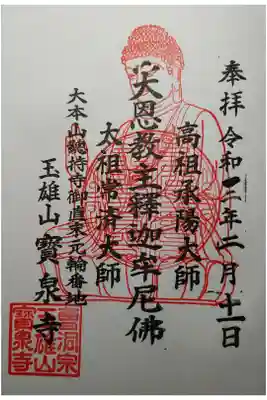 奉拝 令和二年二月十一日
高祖承陽大師
大恩教主釋迦牟尼佛
太祖常済大師
大本山總持寺御直末元輪番地
玉雄山 寶泉寺
曹洞宗
玉雄山
寶泉寺